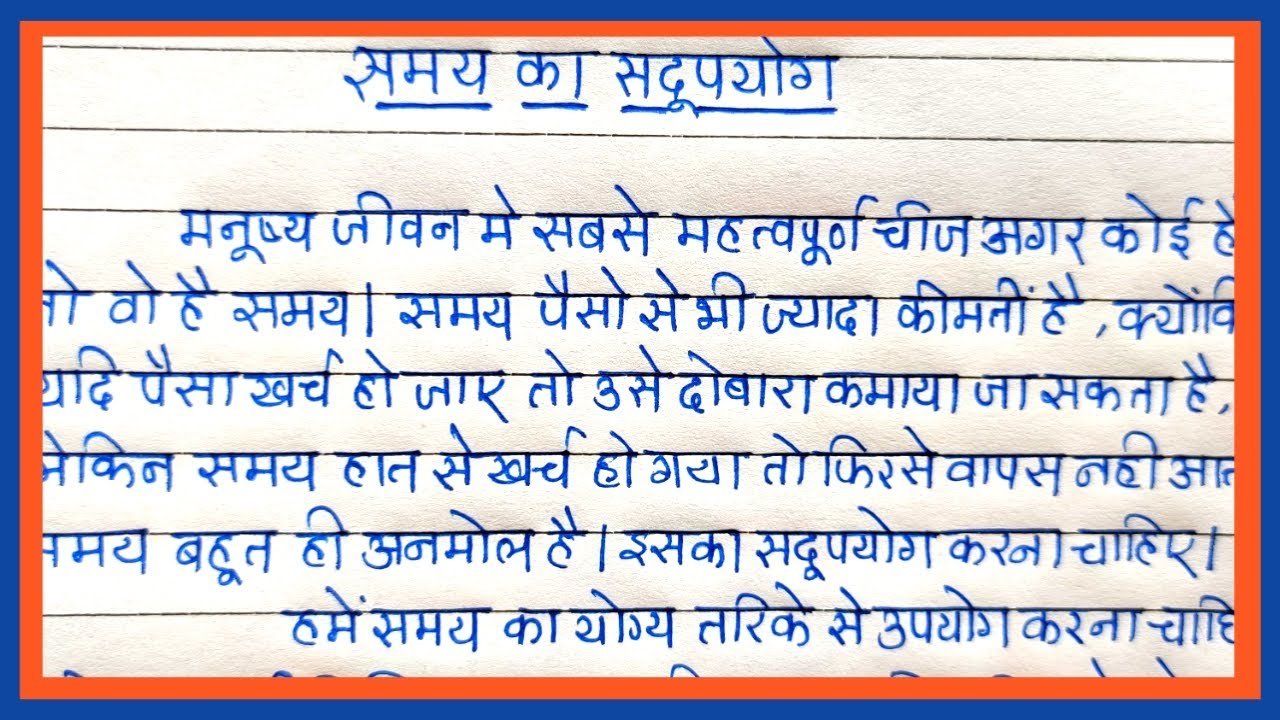 समय का सदूपयोग
मनूष्य जीवन मे सबसे महत्वपूर्ण चीज अगर कोई है
तो वो है समय। समय पैसो से भी ज्यादा कीमतीं है , क्योंकि
यदि पैसा खर्च हो जाए तो उसे दोबारा कमाया जा सकता है,
लेकिन समय हात से खर्च हो गया तो फिर से वापस नही आत
समय बहूत ही अनमोल है। इसका सदूपयोग करना चाहिए।
हमें समय का योग्य तरिके से उपयोग करना चाहि